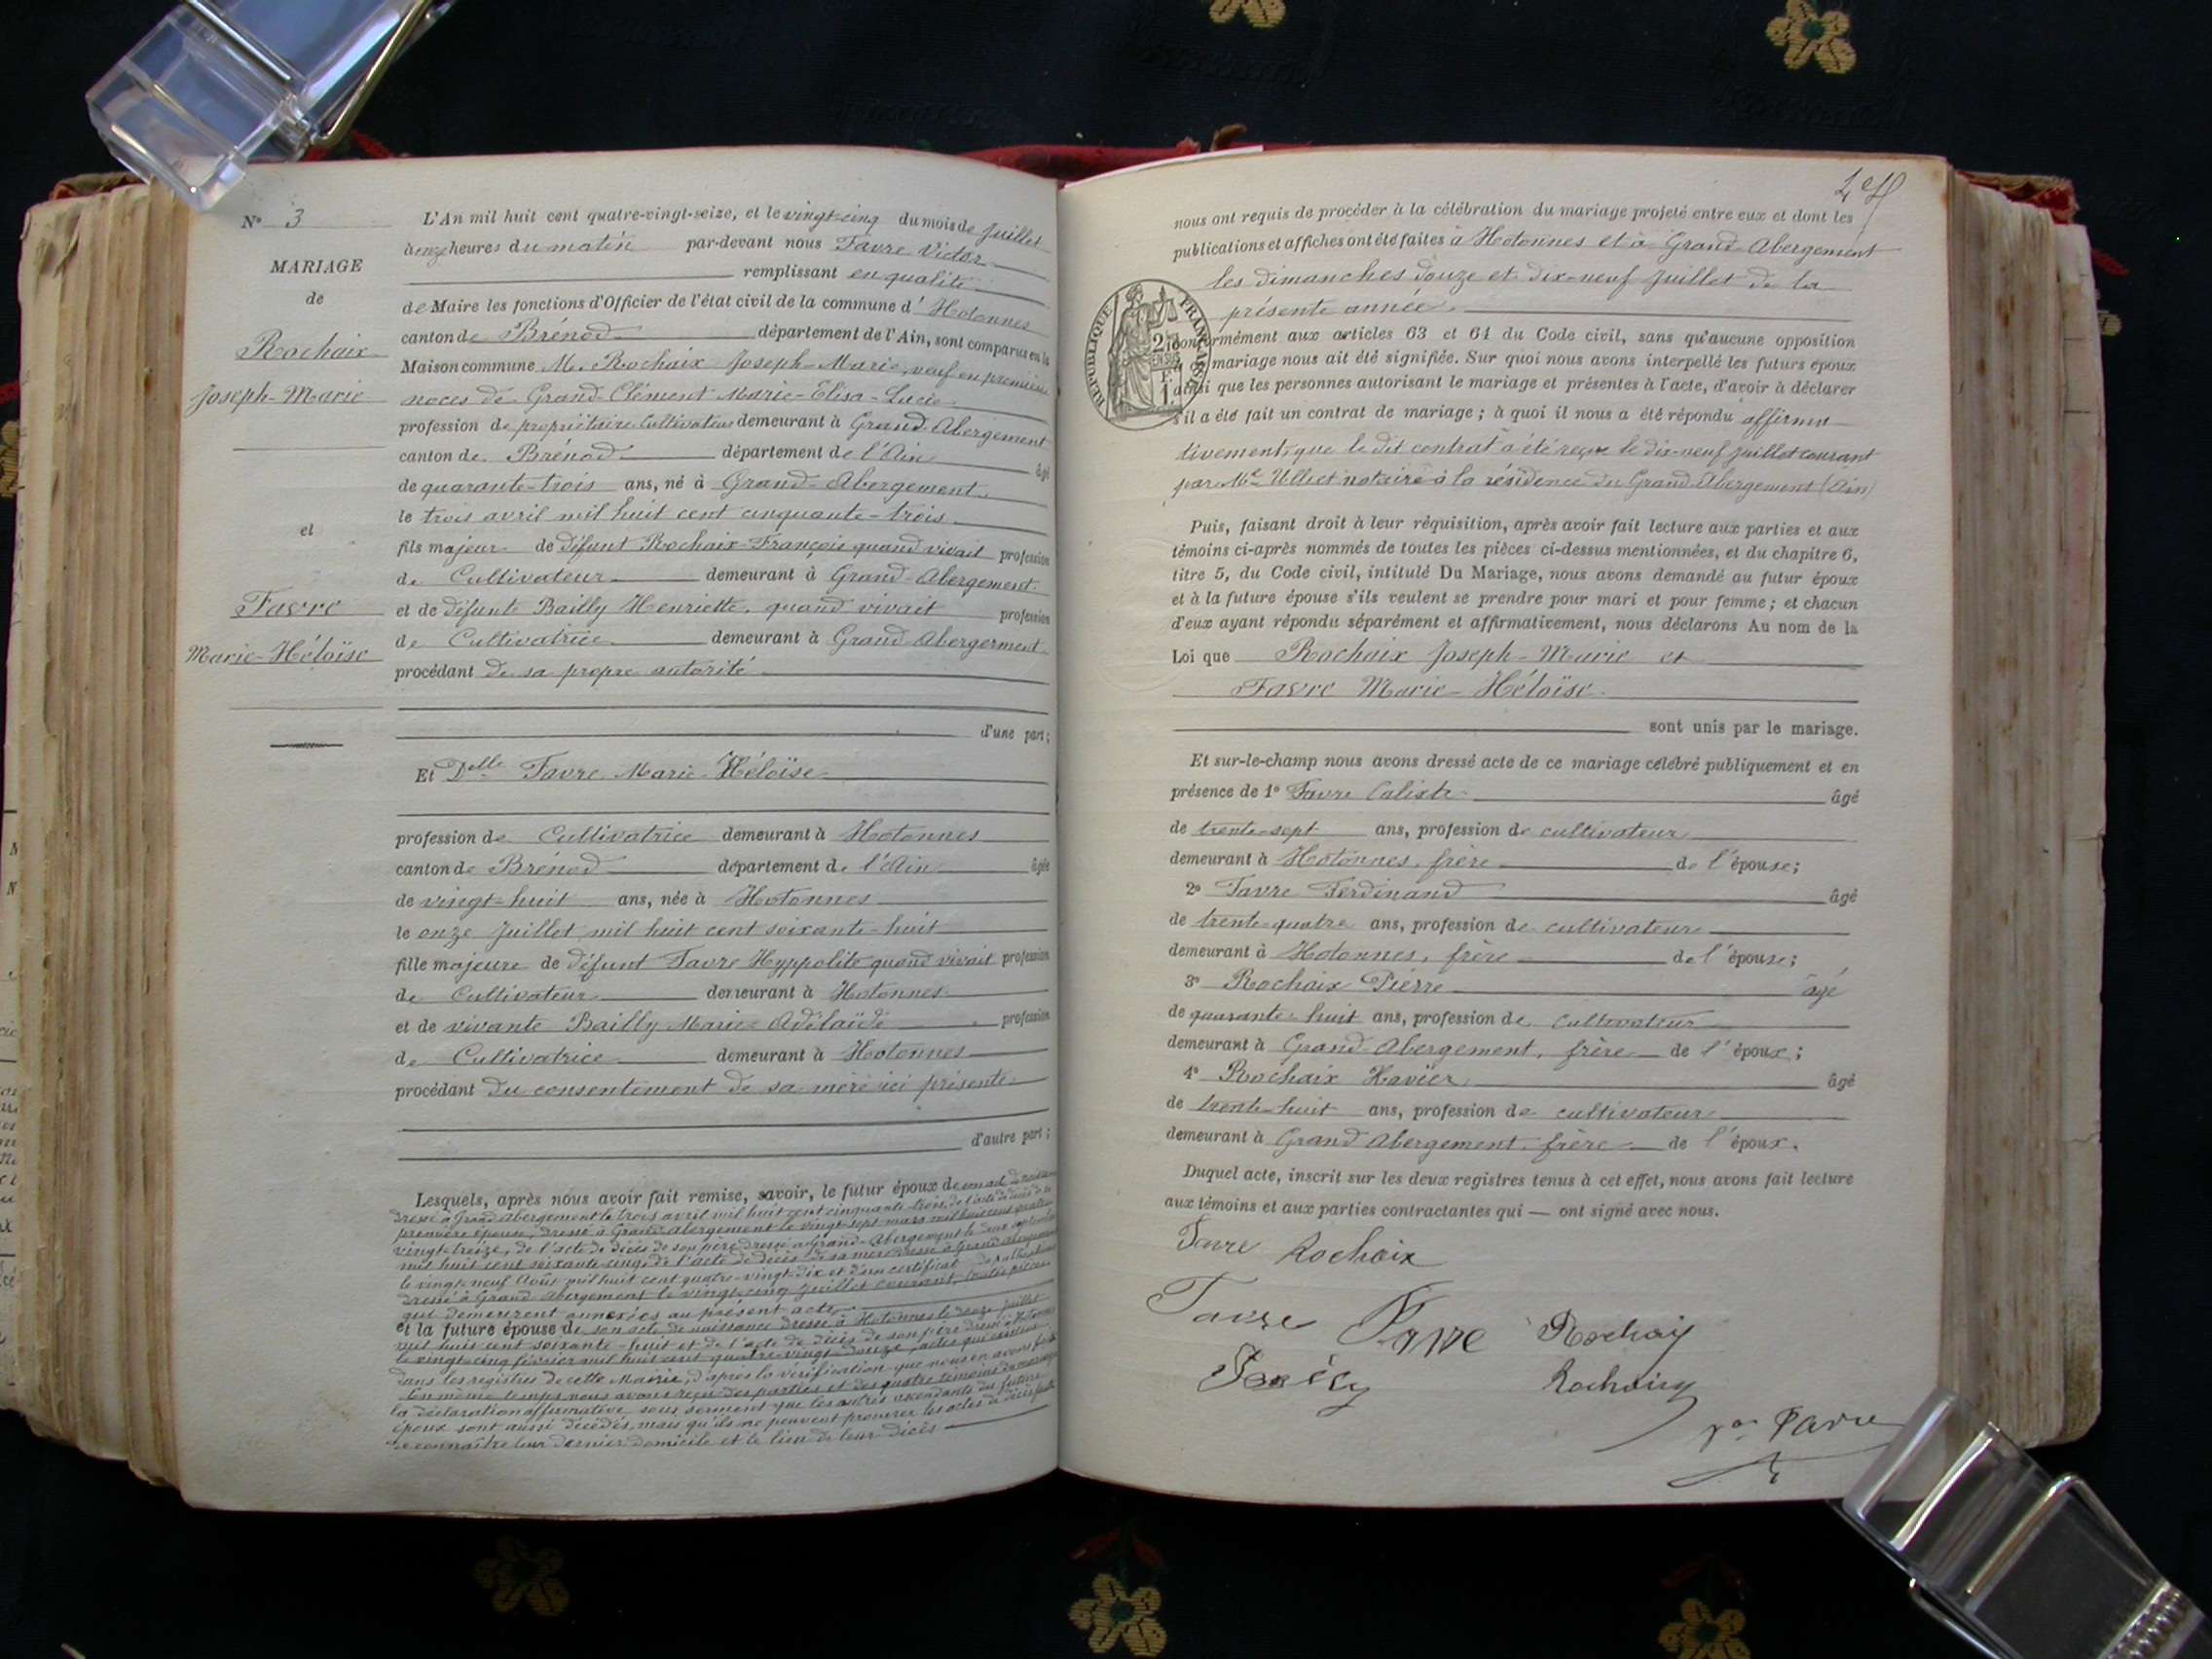 N° 3
MARIAGE
de
Rochaix
Joseph-Marie
et
Favre
Marie-Héloïse
L'An mil huit cent quatre-vingt-seize, et le vingt-cinq du mois de Juillet
à onze heures du matin par-devant nous Favre Victor
remplissant en qualité
de Maire les fonctions d'Officier de l'état civil de la commune d' Hotonnes
canton de Brénod département de l'Ain, sont comparus en la
Maison commune M. Rochaix Joseph-Marie, veuf en première
noces de Grand-Clément Marie-Elisa-Lucie
profession de propriétaire Cultivateur demeurant à Grand-Abergement
canton de Brénod département de l'Ain âgé
de quarante-trois ans, né à Grand-Abergement
le trois avril mil huit cent cinquante-trois
fils majeur de défunt Rochaix François quand vivait profession
de Cultivateur demeurant à Grand-Abergement
et de défunte Bailly Henriette, quand vivait profession
de Cultivatrice demeurant à Grand-Abergement
procédant de sa propre autorité
d'une part;
Et Delle Favre Marie-Héloïse
profession de Cultivatrice demeurant à Hotonnes
canton de Brénod département de l'Ain âgée
de vingt-huit ans, née à Hotonnes
le onze Juillet mil huit cent soixante-huit
fille majeure de défunt Favre Hyppolite quand vivait profession
de Cultivateur demeurant à Hotonnes
et de vivante Bailly Marie-Adélaïde profession
de Cultivatrice demeurant à Hotonnes
procédant du consentement de sa mère ici présente
d'autre part;
Lesquels, après nous avoir fait remise, savoir, le futur époux de
dressé à Grand Abergement le trois avril mil huit cent cinquante-trois, de l'acte de décès de la
première épouse, dressé à Grand-Abergement le vingt sept mars mil huit cent quatre
vingt-treize, de l'acte de décès de son père dressé à Grand-Abergement le deux septembre
mil huit cent soixante-cinq, de l'acte de décès de sa mère dressé à Grand Abergement
le vingt-neuf Août mil huit cent quatre-vingt-dix et d'un certificat de publications
dressé à Grand-Abergement le vingt-cinq Juillet courant, toutes pièces
qui demeurent annexées au présent acte
et la future épouse de son acte de naissance dressé à Hotonnes le onze Juillet
mil huit cent soixante-huit et de l'acte de décès de son père dressé à Hotonnes
le vingt-cinq février mil huit cent quatre-vingt-douze, actes qui
dans les registres de cette Mairie, d'après la vérification que nous en avons faite
En même temps nous avons reçu des parties et des quatre témoins du mariage
la déclaration affirmative sous serment que les autres ascendants du futur
époux sont aussi décédés, mais qu'ils ne peuvent procurer les actes de décès faute
de connaître leur dernier domicile et le lieu de leur décès
nous ont requis de procéder à la célébration du mariage projeté entre eux et dont les
publications et affiches ont été faites à Hotonnes et à Grand-Abergement
les dimanches douze et dix-neuf Juillet de la
présente année
RÉPUBLIQUE FRANÇAISE
conformément aux articles 63 et 64 du Code civil, sans qu'aucune opposition
à ce mariage nous ait été signifiée. Sur quoi nous avons interpellé les futurs époux
ainsi que les personnes autorisant le mariage et présentes à l'acte, d'avoir à déclarer
s'il a été fait un contrat de mariage; à quoi il nous a été répondu affirma
tivement, que le dit contrat a été reçu le dix-neuf Juillet courant
par Me Ulliet notaire à la résidence du Grand Abergement (Ain)
Puis, faisant droit à leur réquisition, après avoir fait lecture aux parties et aux
témoins ci-après nommés de toutes les pièces ci-dessus mentionnées, et du chapitre 6,
titre 5, du Code civil, intitulé Du Mariage, nous avons demandé au futur époux
et à la future épouse s'ils veulent se prendre pour mari et pour femme; et chacun
d'eux ayant répondu séparément et affirmativement, nous déclarons Au nom de la
Loi que Rochaix Joseph-Marie et
Favre Marie-Héloïse
sont unis par le mariage.
Et sur-le-champ nous avons dressé acte de ce mariage célébré publiquement et en
présence de 1° Favre Calixte âgé
de trente-sept ans, profession de cultivateur
demeurant à Hotonnes, frère de l'épouse;
2° Favre Ferdinand âgé
de trente-quatre ans, profession de cultivateur
demeurant à Hotonnes, frère de l'épouse;
3° Rochaix Pierre âgé
de quarante-huit ans, profession de Cultivateur
demeurant à Grand-Abergement, frère de l'époux;
4° Rochaix Xavier âgé
de trente-huit ans, profession de cultivateur
demeurant à Grand Abergement, frère de l'époux.
Duquel acte, inscrit sur les deux registres tenus à cet effet, nous avons fait lecture
aux témoins et aux parties contractantes qui — ont signé avec nous.
Favre Rochaix
Favre Favre Rochaix
Bailly Rochaix
Vor Favre